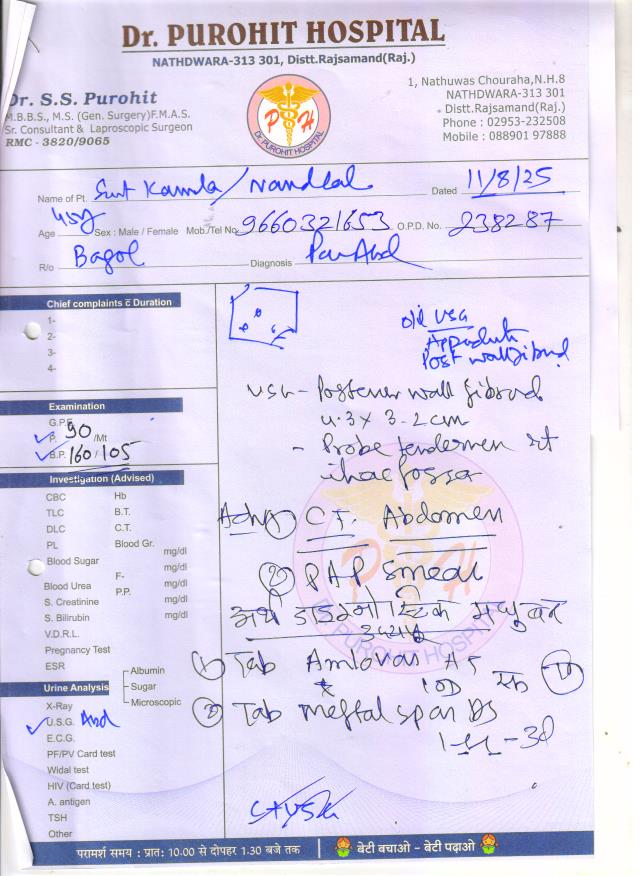 Dr. PUROHIT HOSPITAL
NATHDWARA-313 301, Distt.Rajsamand(Raj.)
Dr. S.S. Purohit
M.B.B.S., M.S. (Gen. Surgery)F.M.A.S.
Sr. Consultant & Laproscopic Surgeon
RMC - 3820/9065
P H
Dr. PUROHIT HOSPITAL
1, Nathuwas Chouraha,N.H.8
NATHDWARA-313 301
Distt.Rajsamand(Raj.)
Phone : 02953-232508
Mobile : 088901 97888
Name of Pt. Smt Kamla/Nandlal Dated 11/8/25
Age 45y Sex : Male / Female Mob./Tel No. 9660321653 O.P.D. No. 238287
R/o Bagol Diagnosis Pain Abd
Chief complaints c̄ Duration
1-
2-
3-
4-
old USG
Post wall fibroid
USG - Posterior wall fibroid
4.3 x 3.2 cm
- Probe tenderness rt
iliac fossa
Examination
G.P.E.
P. 90 /Mt
B.P. 160/105
Investigation (Advised)
CBC Hb
TLC B.T.
DLC C.T.
PL Blood Gr.
Blood Sugar mg/dl
F- mg/dl
Blood Urea P.P. mg/dl
S. Creatinine mg/dl
S. Bilirubin
V.D.R.L.
Pregnancy Test
ESR
Adv ① C.T. Abdomen
② PAP smear
① Tab Amlovas AT 1OD
② Tab meftal spas DS
Urine Analysis
Albumin
Sugar
Microscopic
X-Ray
U.S.G. Abd
E.C.G.
PF/PV Card test
Widal test
HIV (Card test)
A. antigen
TSH
Other
परामर्श समय : प्रातः 10.00 से दोपहर 1.30 बजे तक
बेटी बचाओ - बेटी पढ़ाओ